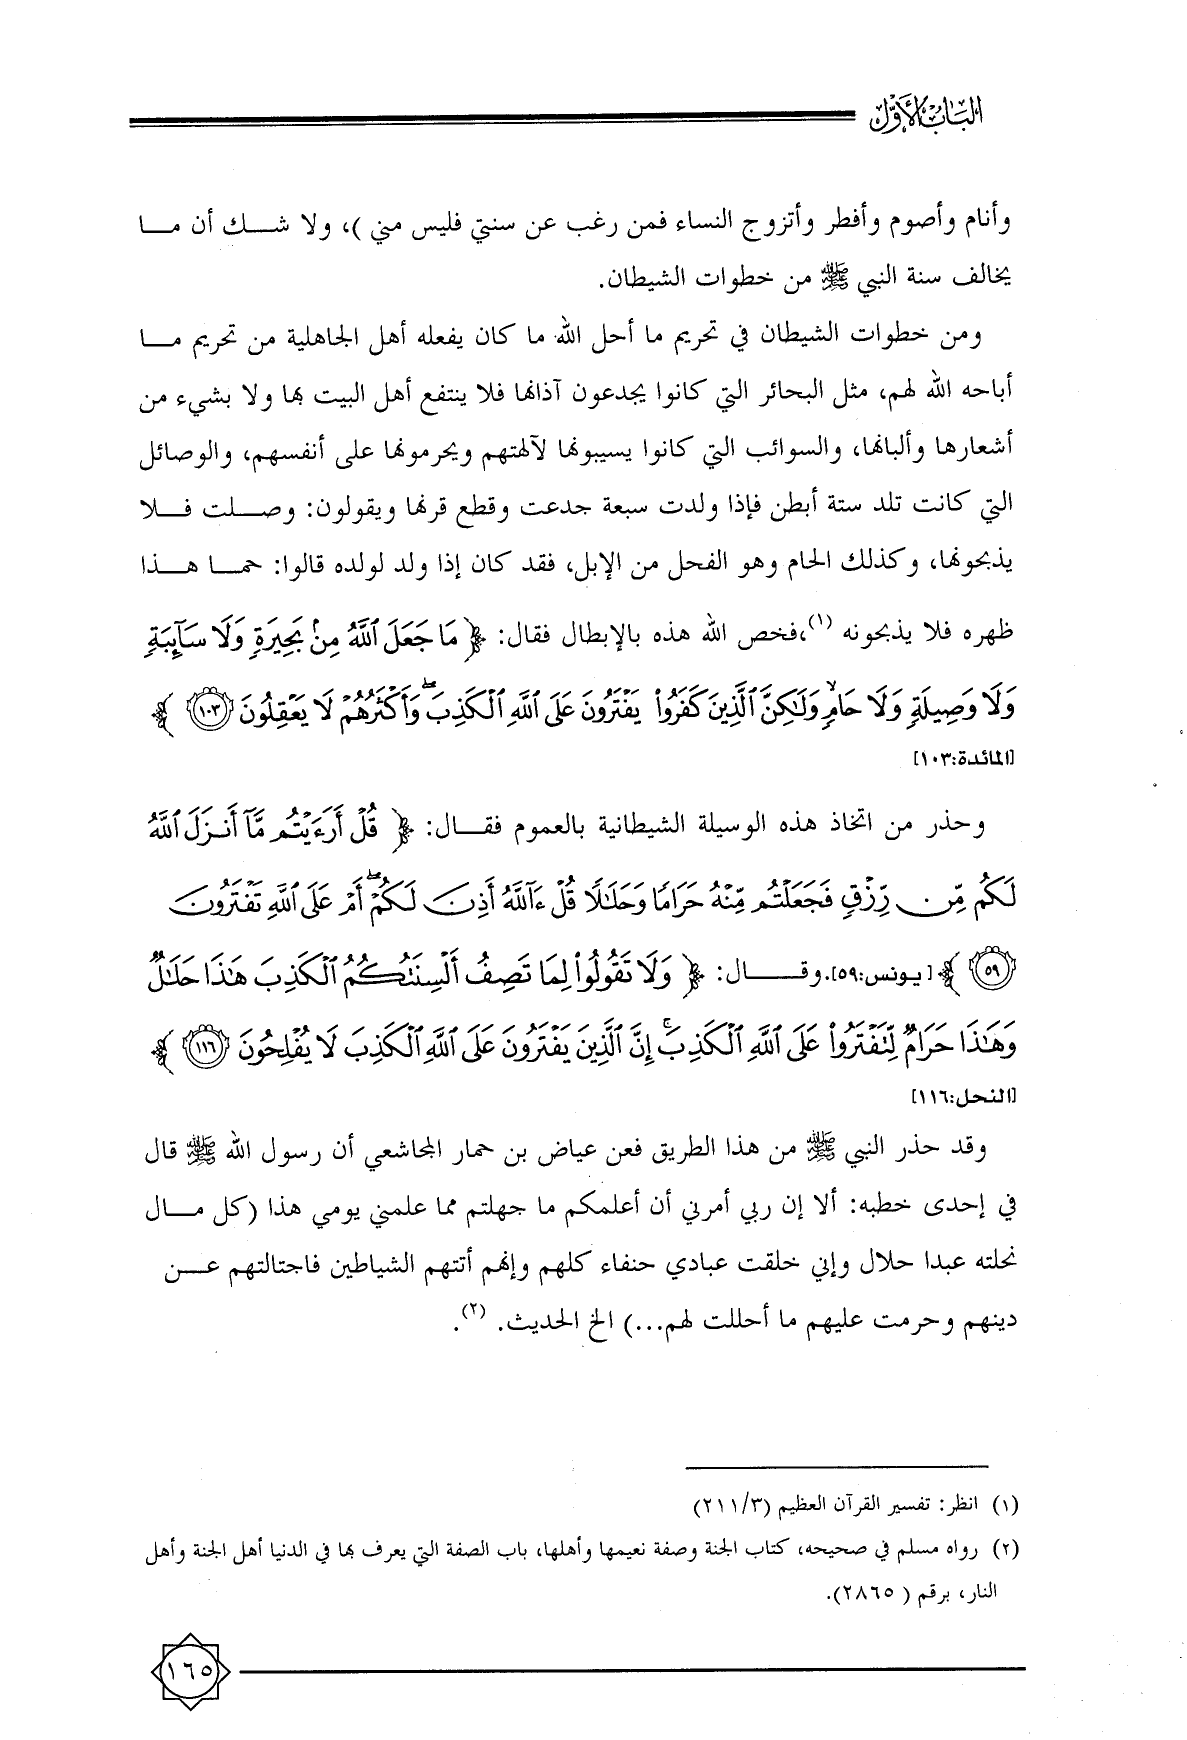 الباب الأول
وأنام وأصوم وأفطر وأتزوج النساء فمن رغب عن سنتي فليس مني )، ولا شــك أن مــا
يخالف سنة النبي ﷺ من خطوات الشيطان.
ومن خطوات الشيطان في تحريم ما أحل الله ما كان يفعله أهل الجاهلية من تحريم مــا
أباحه الله لهم، مثل البحائر التي كانوا يجدعون آذانها فلا ينتفع أهل البيت بها ولا بشيء من
أشعارها وألبانها، والسوائب التي كانوا يسيبونها لآلهتهم ويحرمونها على أنفسهم، والوصائل
التي كانت تلد ستة أبطن فإذا ولدت سبعة جدعت وقطع قرنها ويقولون: وصــلت فــلا
يذبحونها، وكذلك الحام وهو الفحل من الإبل، فقد كان إذا ولد لولده قالوا: حمــا هــذا
ظهره فلا يذبحونه (١)،فخص الله هذه بالإبطال فقال: ﴿ مَا جَعَلَ ٱللَّهُ مِنۢ بَحِيرَةٍ وَلَا سَآئِبَةٍ
وَلَا وَصِيلَةٍ وَلَا حَامٍ ۙ وَلَٰكِنَّ ٱلَّذِينَ كَفَرُوا۟ يَفْتَرُونَ عَلَى ٱللَّهِ ٱلْكَذِبَ ۖ وَأَكْثَرُهُمْ لَا يَعْقِلُونَ ١٠٣ ﴾
[المائدة:١٠٣]
وحذر من اتخاذ هذه الوسيلة الشيطانية بالعموم فقــال: ﴿ قُلْ أَرَءَيْتُم مَّآ أَنزَلَ ٱللَّهُ
لَكُم مِّن رِّزْقٍ فَجَعَلْتُم مِّنْهُ حَرَامًا وَحَلَٰلًا قُلْ ءَآللَّهُ أَذِنَ لَكُمْ ۖ أَمْ عَلَى ٱللَّهِ تَفْتَرُونَ
٥٩ ﴾ [يونس:٥٩].وقــــال: ﴿ وَلَا تَقُولُوا۟ لِمَا تَصِفُ أَلْسِنَتُكُمُ ٱلْكَذِبَ هَٰذَا حَلَٰلٌ
وَهَٰذَا حَرَامٌ لِّتَفْتَرُوا۟ عَلَى ٱللَّهِ ٱلْكَذِبَ ۚ إِنَّ ٱلَّذِينَ يَفْتَرُونَ عَلَى ٱللَّهِ ٱلْكَذِبَ لَا يُفْلِحُونَ ١١٦ ﴾
[النحل:١١٦]
وقد حذر النبي ﷺ من هذا الطريق فعن عياض بن حمار المجاشعي أن رسول الله ﷺ قال
في إحدى خطبه: ألا إن ربي أمرني أن أعلمكم ما جهلتم مما علمني يومي هذا (كل مــال
نحلته عبدا حلال وإني خلقت عبادي حنفاء كلهم وإنهم أتتهم الشياطين فاجتالتهم عــن
دينهم وحرمت عليهم ما أحللت لهم...) الخ الحديث. (٢).
(١) انظر: تفسير القرآن العظيم (٢١١/٣)
(٢) رواه مسلم في صحيحه، كتاب الجنة وصفة نعيمها وأهلها، باب الصفة التي يعرف بها في الدنيا أهل الجنة وأهل
النار، برقم ( ٢٨٦٥).
١٦٥